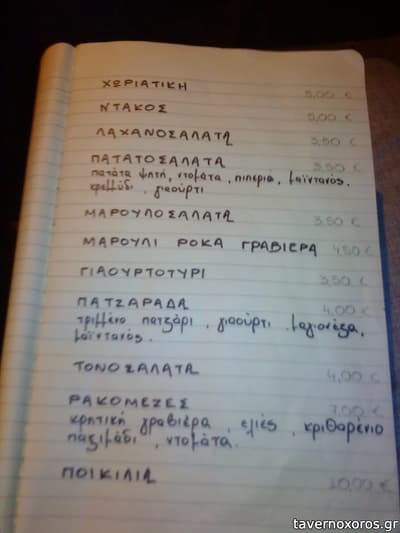 ΧΩΡΙΑΤΙΚΗ 5,00 €
ΝΤΑΚΟΣ 5,00 €
ΛΑΧΑΝΟΣΑΛΑΤΑ 3,50 €
ΠΑΤΑΤΟΣΑΛΑΤΑ 3,50 €
πατάτα ψητή, ντομάτα, πιπεριά, μαϊντανός,
κρεμμύδι, γιαούρτι
ΜΑΡΟΥΛΟΣΑΛΑΤΑ 3,50 €
ΜΑΡΟΥΛΙ ΡΟΚΑ ΓΡΑΒΙΕΡΑ 4,50 €
ΓΙΑΟΥΡΤΟΤΥΡΙ 3,50 €
ΠΑΤΖΑΡΑΔΑ 4,00 €
τριμμένο πατζάρι, γιαούρτι, μαγιονέζα,
μαϊντανός.
ΤΟΝΟΣΑΛΑΤΑ 4,00 €
ΡΑΚΟΜΕΖΕΣ 7,00 €
κρητική γραβιέρα, ελιές, κριθαρένιο
παξιμάδι, ντομάτα.
ΠΟΙΚΙΛΙΑ 10,00 €
tavernoxoros.gr